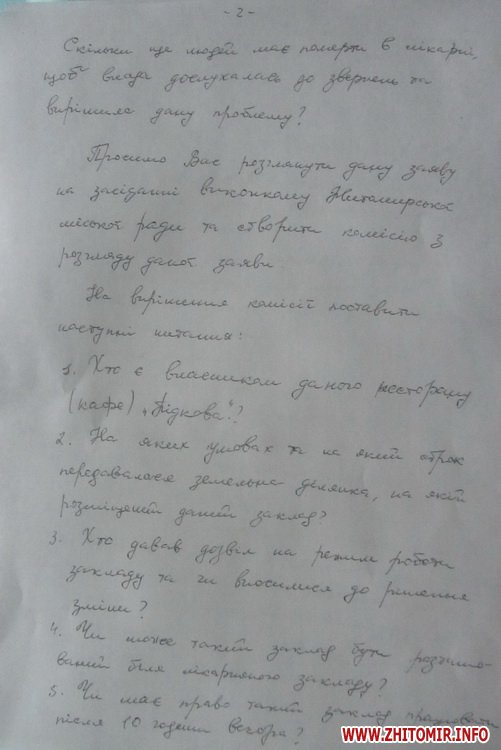 - 2 -
Скільки ще людей має померти в лікарні,
щоб влада дослухалась до звернень та
вирішила дану проблему?
Просимо Вас розглянути дану заяву
на засіданні виконкому Житомирської
міської ради та створити комісію з
розгляду даної заяви.
На вирішення комісії поставити
наступні питання:
1. Хто є власником даного ресторану
(кафе) „Підкова"?
2. На яких умовах та на який строк
передавалася земельна ділянка, на якій
розміщений даний заклад?
3. Хто давав дозвіл на режим роботи
закладу та чи вносилися до рішення
зміни?
4. Чи може такий заклад бути розташо-
ваний біля лікарняного закладу?
5. Чи має право такий заклад працювати
після 10 години вечора?
WWW.ZHITOMIR.INFO